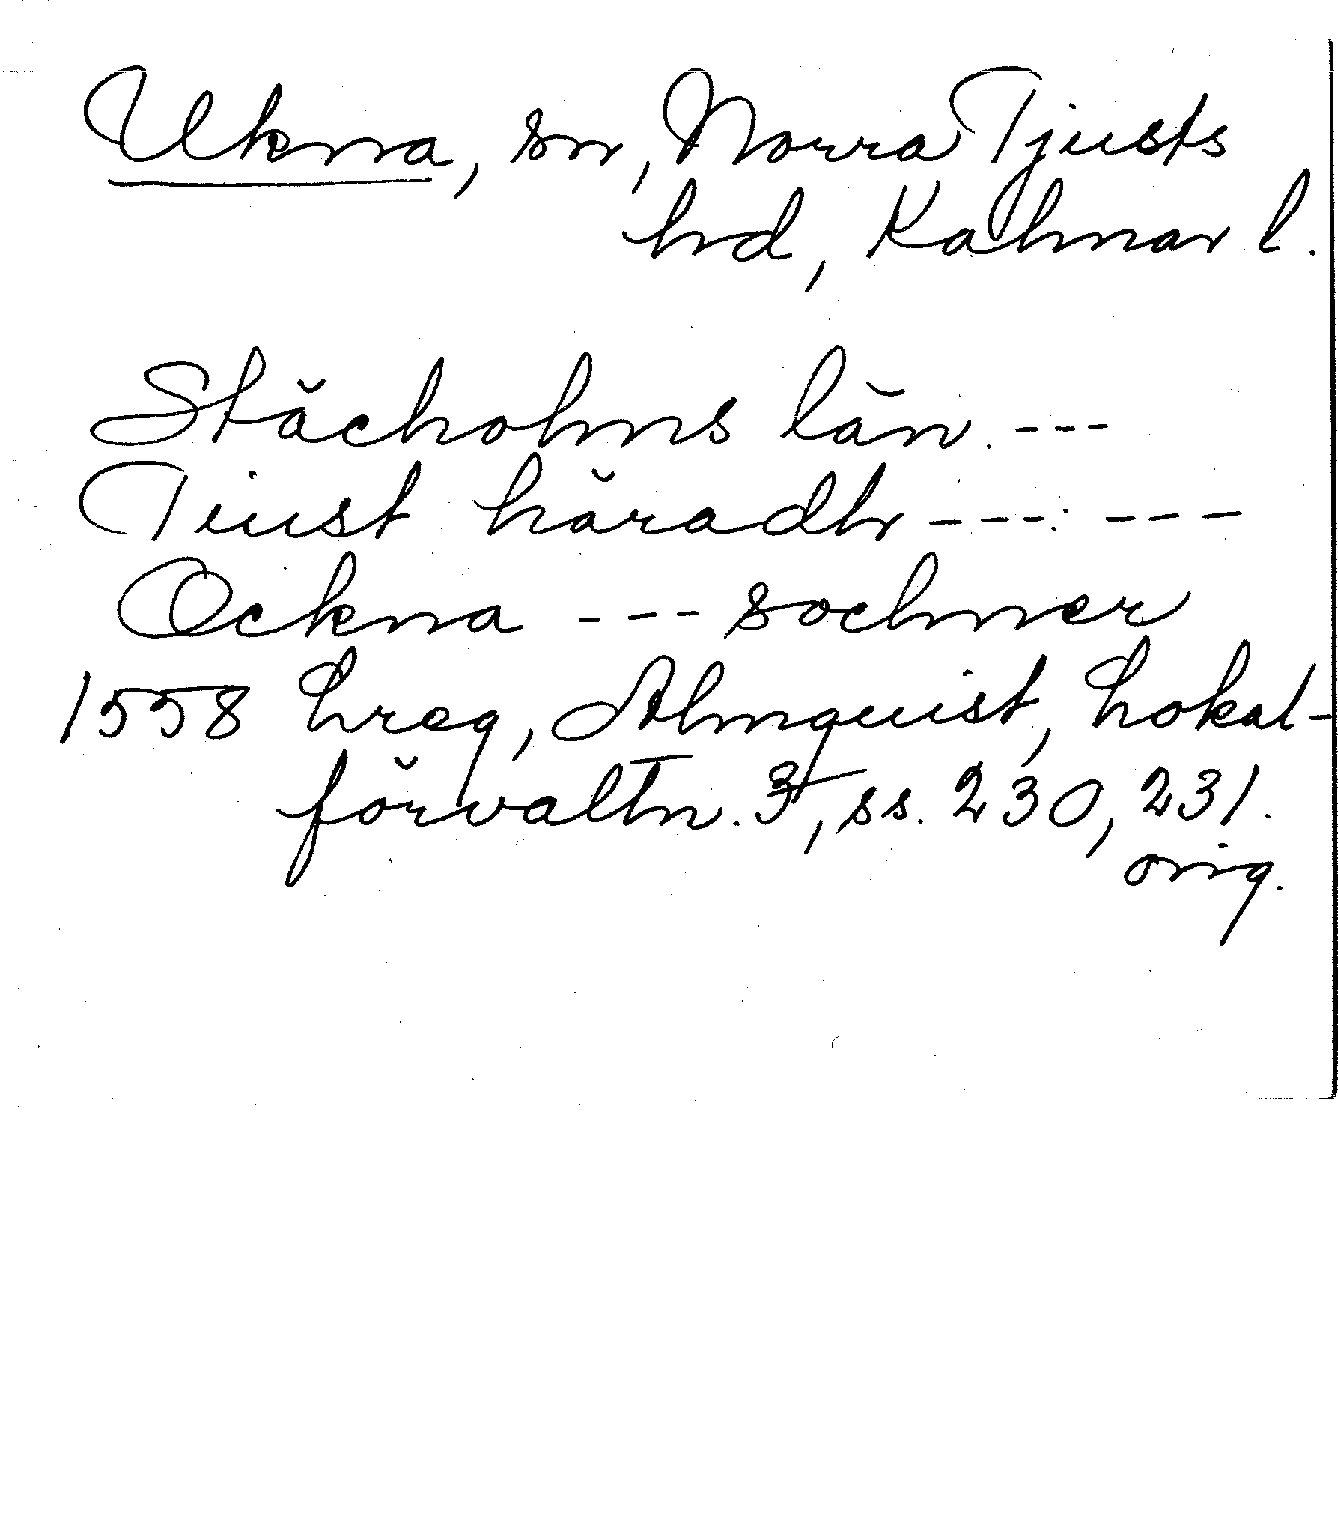 Ukna, sn, Norra Tjusts
hd, Kalmar l.
Stächolms län. ---
Tiust häradh --- ---
Ockna --- sochner
1558 Lreg, Almquist, Lokal-
förvaltn. 3, ss. 230, 231.
orig.